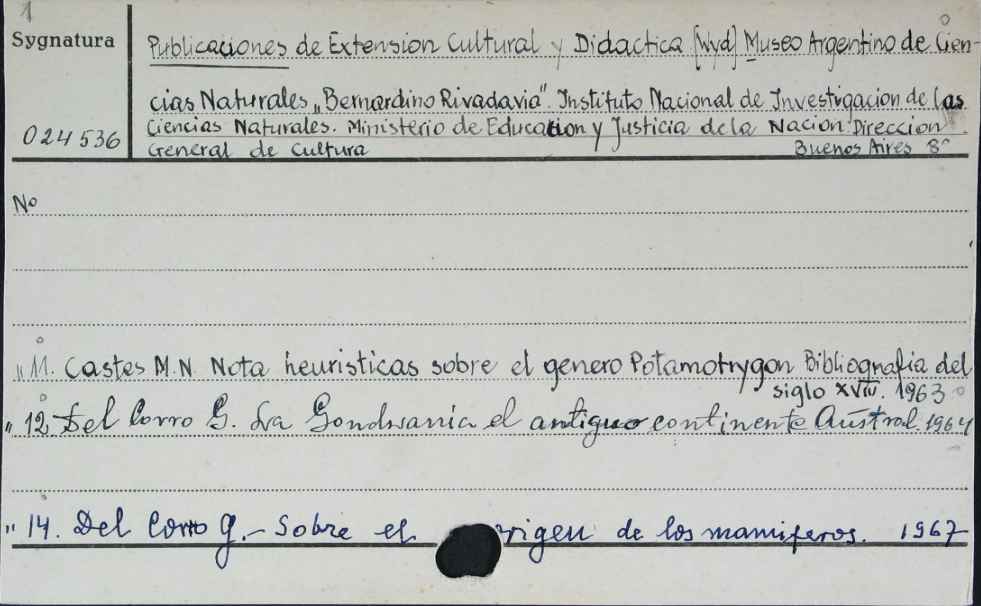 1
Sygnatura
024536
Publicaciones de Extension Cultural y Didactica [Wyd] Museo Argentino de Cien-
cias Naturales „Bernardino Rivadavia". Instituto Nacional de Investigacion de las
Ciencias Naturales. Ministerio de Educacion y Justicia de la Nacion. Direccion
General de Cultura Buenos Aires 8°
No
„ 11. Castes M.N. Nota heuristicas sobre el genero Potamotrygon Bibliografia del
siglo XVIII. 1963
„ 12. Del Corro G. La Gondwania el antiguo continente Austral. 1964
„ 14. Del Corro G. – Sobre el origen de los mamiferos. 1967